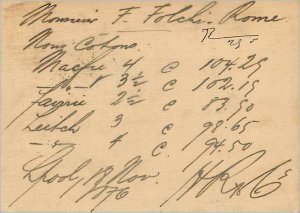 Monsieur F. Folchi. Rome
Nous Cotons.
Macfie 4 c 104.25
" 3½ c 102.15
Fairrie 2½ c 83.50
Leitch 3 c 98.65
" 4 c 94.50
Lpool, 18 Nov.
1876